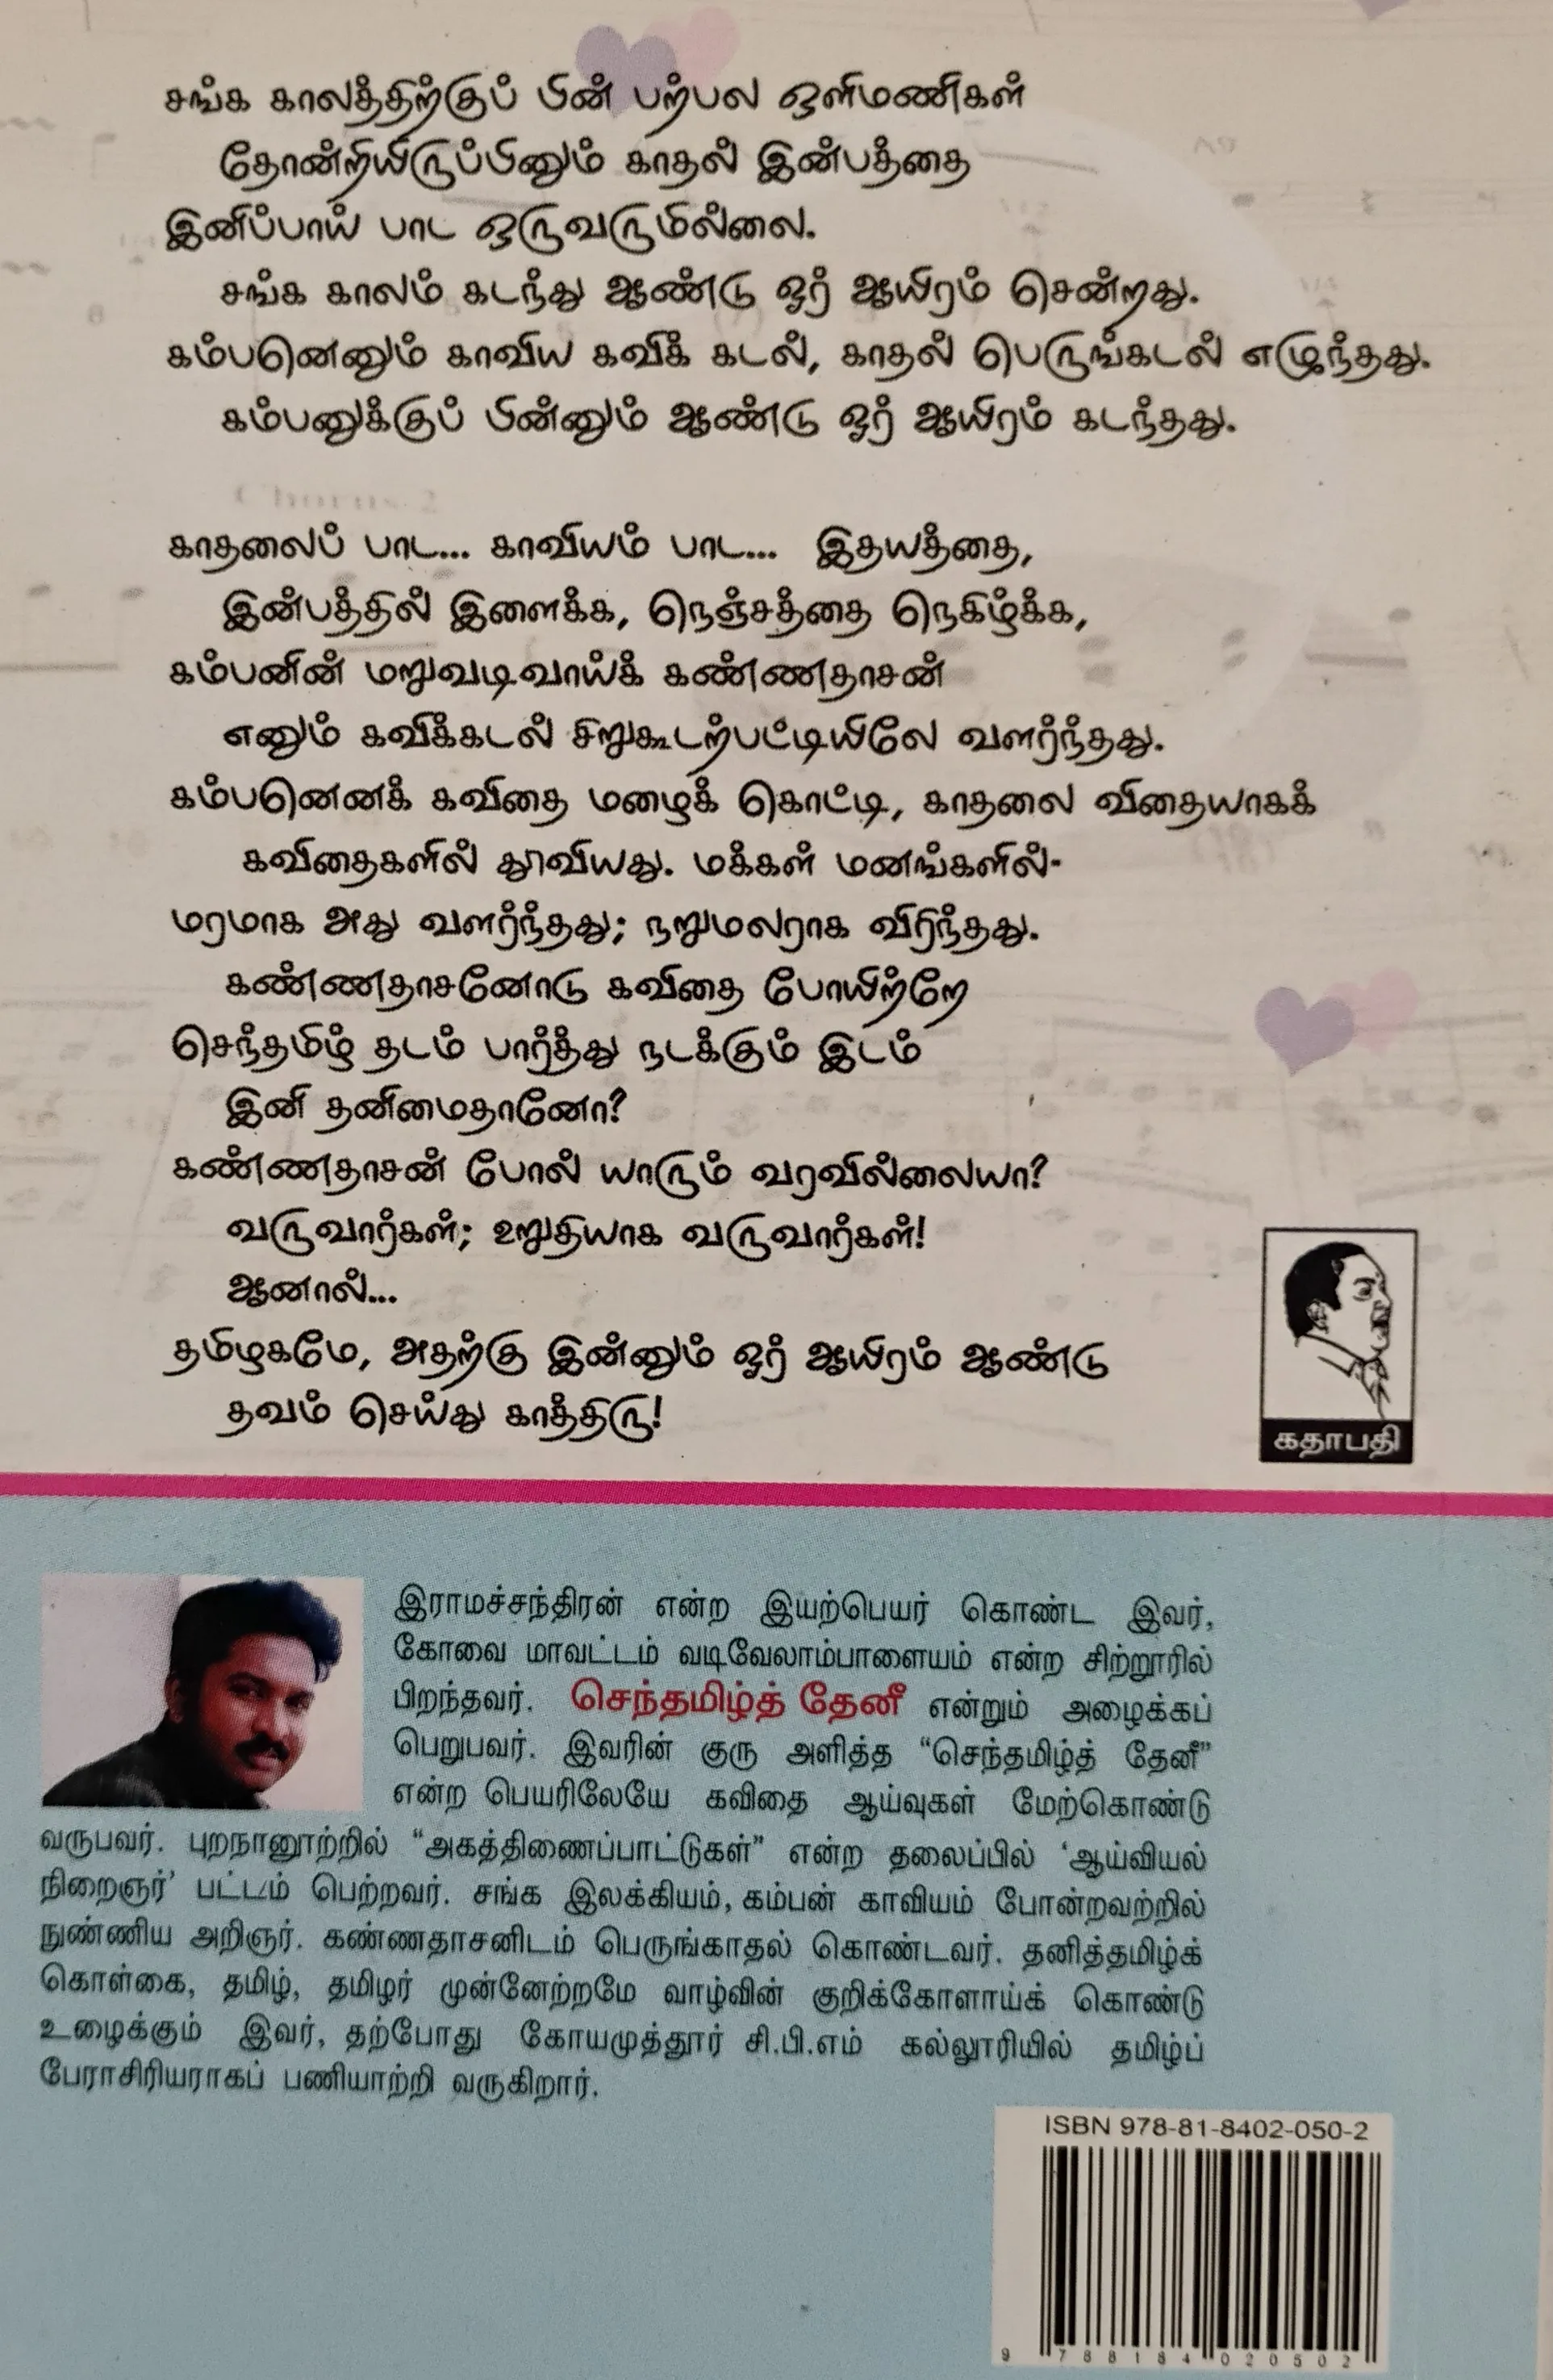 சங்க காலத்திற்குப் பின் பற்பல ஒளிமணிகள்
தோன்றியிருப்பினும் காதல் இன்பத்தை
இனிப்பாய் பாட ஒருவருமில்லை.
சங்க காலம் கடந்து ஆண்டு ஓர் ஆயிரம் சென்றது.
கம்பனெனும் காவிய கவிக் கடல், காதல் பெருங்கடல் எழுந்தது.
கம்பனுக்குப் பின்னும் ஆண்டு ஓர் ஆயிரம் கடந்தது.
காதலைப் பாட... காவியம் பாட... இதயத்தை,
இன்பத்தில் இளைக்க, நெஞ்சத்தை நெகிழ்க்க,
கம்பனின் மறுவடிவாய்க் கண்ணதாசன்
எனும் கவிக்கடல் சிறுகூடற்பட்டியிலே வளர்ந்தது.
கம்பனெனக் கவிதை மழைக் கொட்டி, காதலை விதையாகக்
கவிதைகளில் தூவியது. மக்கள் மனங்களில்-
மரமாக அது வளர்ந்தது; நறுமலராக விரிந்தது.
கண்ணதாசனோடு கவிதை போயிற்றே
செந்தமிழ் தடம் பார்த்து நடக்கும் இடம்
இனி தனிமைதானோ?
கண்ணதாசன் போல் யாரும் வரவில்லையா?
வருவார்கள்; உறுதியாக வருவார்கள்!
ஆனால்...
தமிழகமே, அதற்கு இன்னும் ஓர் ஆயிரம் ஆண்டு
தவம் செய்து காத்திரு!
கதாபதி
இராமச்சந்திரன் என்ற இயற்பெயர் கொண்ட இவர்,
கோவை மாவட்டம் வடிவேலாம்பாளையம் என்ற சிற்றூரில்
பிறந்தவர். செந்தமிழ்த் தேனீ என்றும் அழைக்கப்
பெறுபவர். இவரின் குரு அளித்த “செந்தமிழ்த் தேனீ”
என்ற பெயரிலேயே கவிதை ஆய்வுகள் மேற்கொண்டு
வருபவர். புறநானூற்றில் “அகத்திணைப்பாட்டுகள்” என்ற தலைப்பில் ‘ஆய்வியல்
நிறைஞர்’ பட்டம் பெற்றவர். சங்க இலக்கியம், கம்பன் காவியம் போன்றவற்றில்
நுண்ணிய அறிஞர். கண்ணதாசனிடம் பெருங்காதல் கொண்டவர். தனித்தமிழ்க்
கொள்கை, தமிழ், தமிழர் முன்னேற்றமே வாழ்வின் குறிக்கோளாய்க் கொண்டு
உழைக்கும் இவர், தற்போது கோயமுத்தூர் சி.பி.எம் கல்லூரியில் தமிழ்ப்
பேராசிரியராகப் பணியாற்றி வருகிறார்.
ISBN 978-81-8402-050-2
9 788184 020502